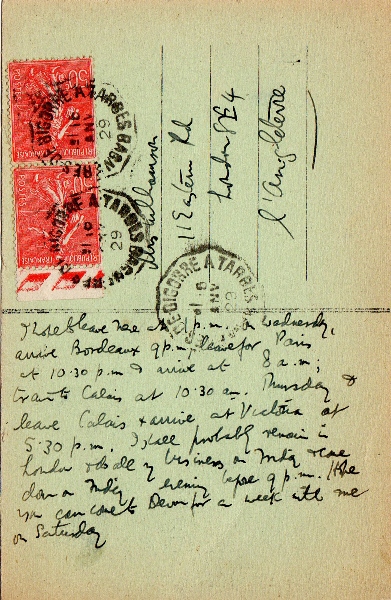 50c
POSTES
REPUBLIQUE FRANÇAISE
50c
POSTES
REPUBLIQUE FRANÇAISE
BIGORRE A TARBES
29
BIGORRE A TARBES
29
DE BIGORRE A TARBES
29
Mrs Williamson
11 Eastern Rd
London SE4
l'Angleterre
I hope to leave here at 1 p.m. on Wednesday,
arrive Bordeaux 9 p.m., leave for Paris
at 10.30 p.m. & arrive at 8 a.m;
train to Calais at 10.30 a.m. Thursday &
leave Calais & arrive at Victoria at
5.30 p.m. I shall probably remain in
London & do all my business on Friday & come
down on Friday evening before 9 p.m. I hope
you can come to Devon for a week with me
on Saturday